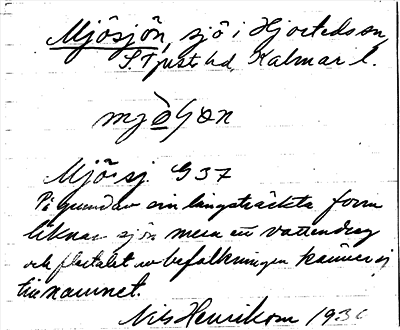 Mjösjön, sjö i Hjorteds sn,
S. Tjust hd, Kalmar l.
Mjösj. G 37
På grund av sin långsträckta form
liknar sjön mera ett vattendrag
och flertalet av befolkningen känner ej
till namnet.
Nils Henrikson 1936